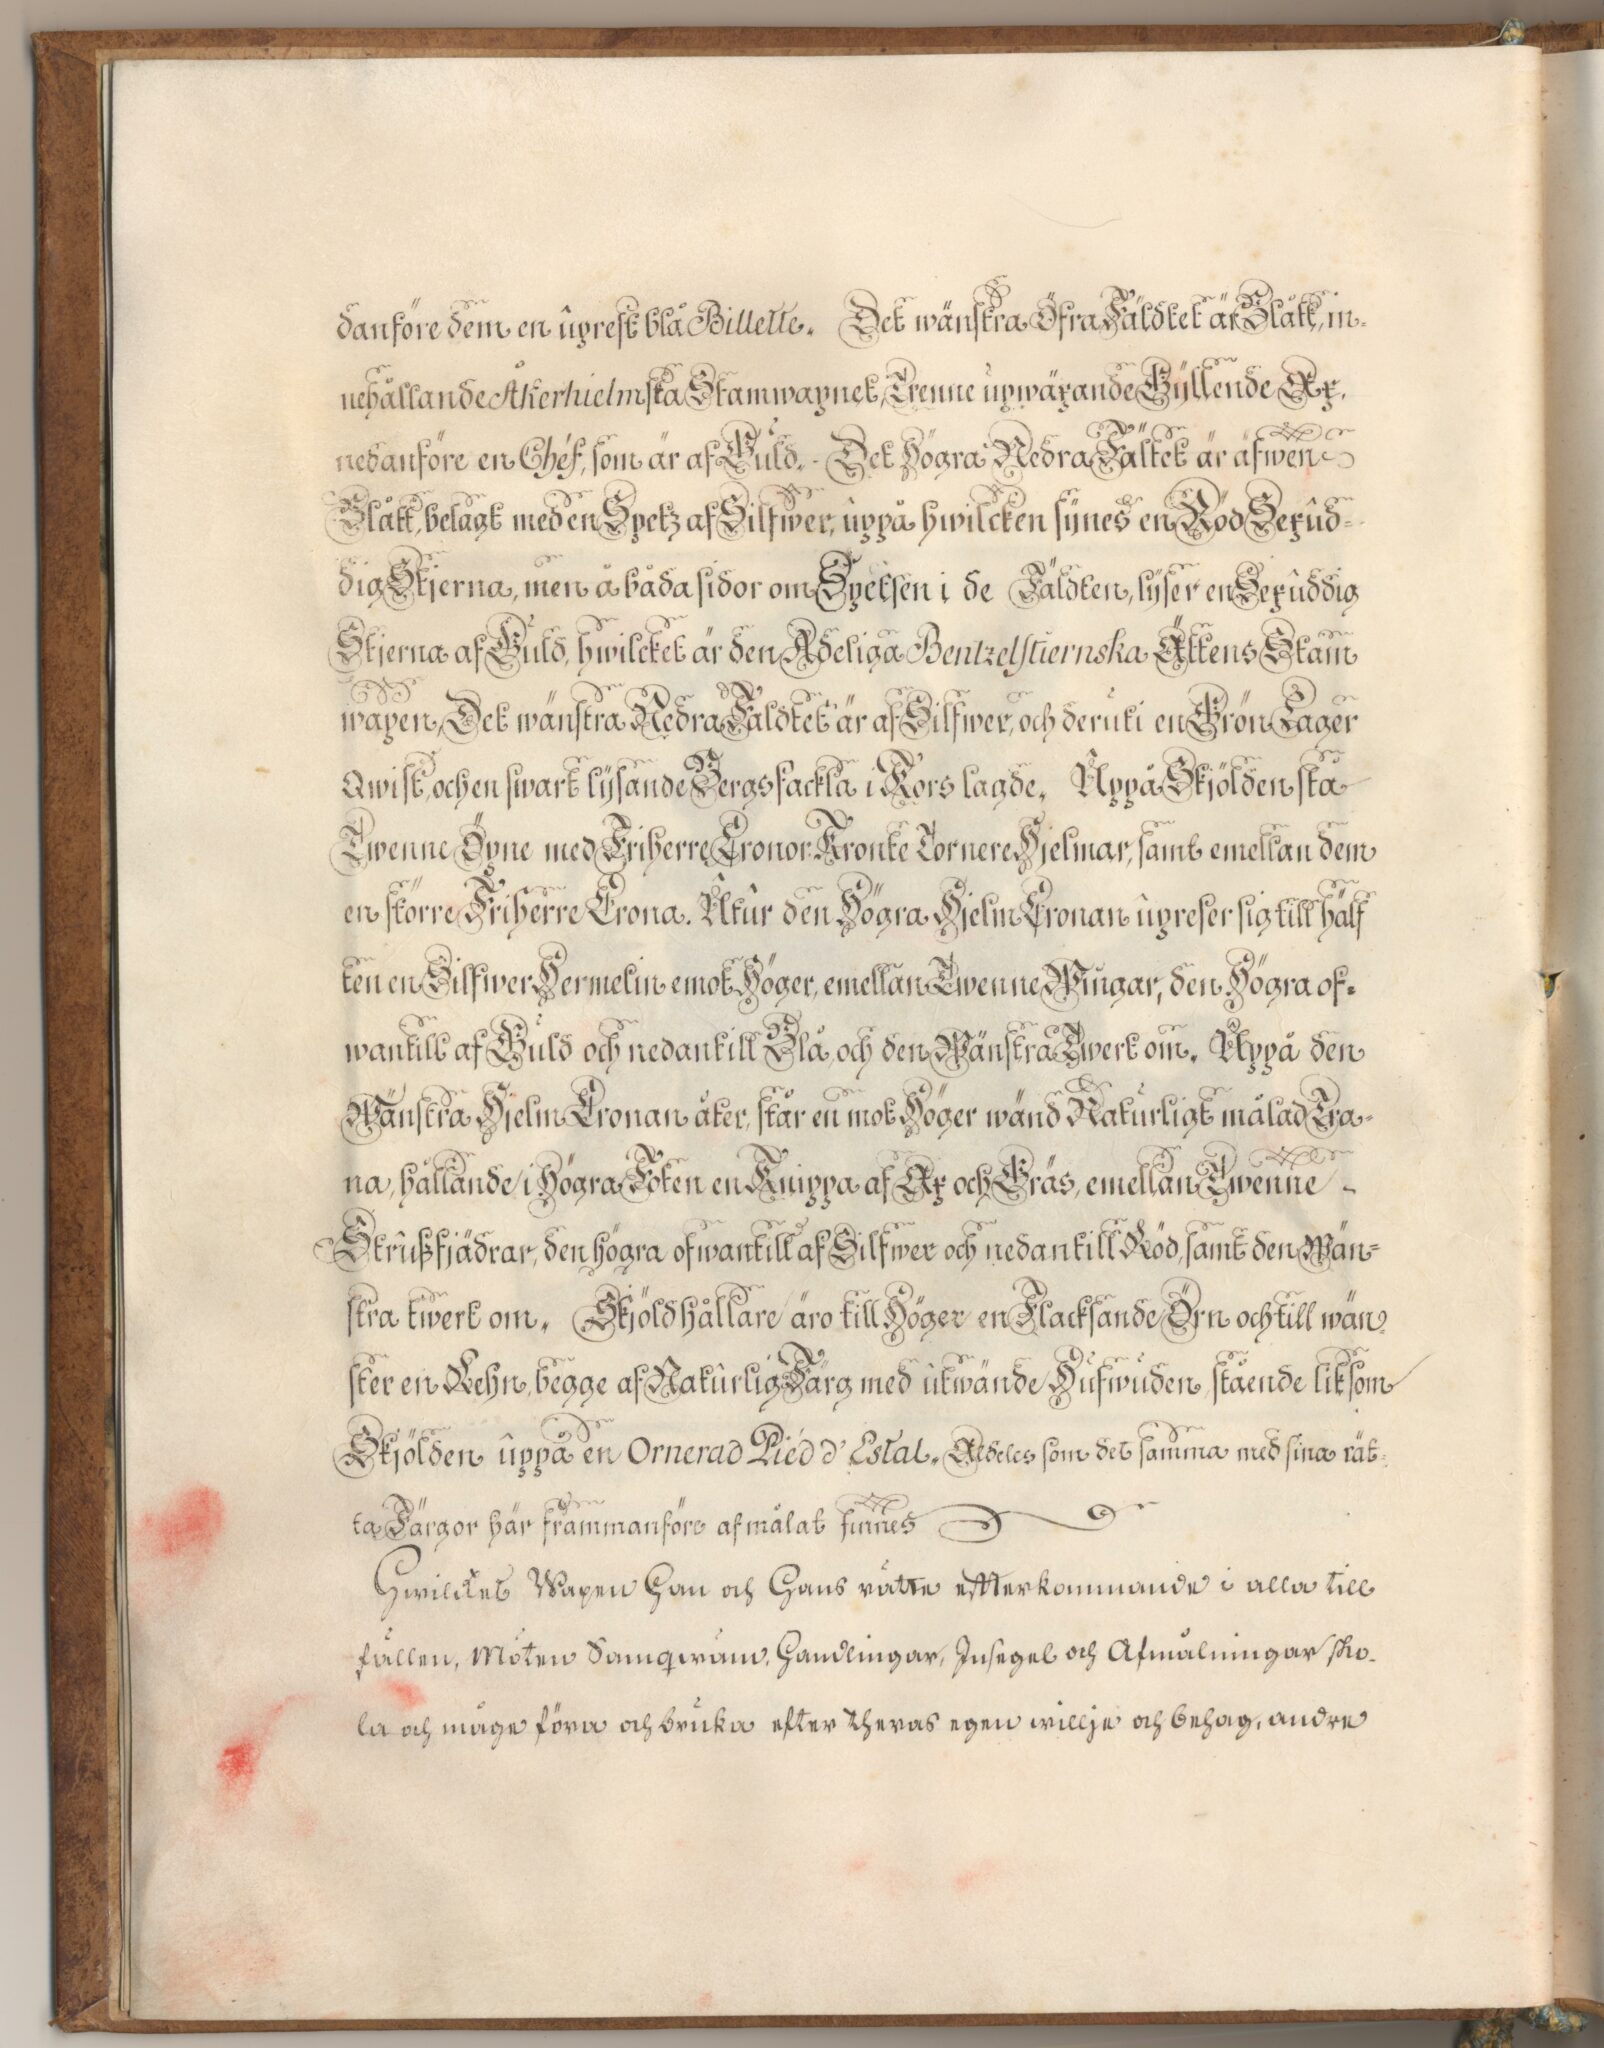 danföre dem en ûprest blå Billette. Det wänstra Öfra Fäldtet är Blått, in-
nehållande Åkerhielmska Stamwapnet, Trenne ûpwäxande Gyllende Ax,
nedanföre en Chéf, som är af Gûld. Det Högra Nedra Fältet är äfwen
Blått, belagt med en Spetz af Silfwer, ûppå hwilcken synes en Röd Sexûd-
dig Stjerna, men å båda sidor om Spetsen i de Fäldten, lyser en Sexûddig
Stjerna af Gûld, hwilcket är den Adeliga Bentzelstiernska Ättens Stam
wapen, Det wänstra Nedra Fäldtet är af Silfwer, och derûti en Grön Lager
Qwist, och en swart lysande Bergsfackla i Kors lagde. Ûppå Skjölden stå
Twenne Öpne med Friherre Cronor Krönte Tornere Hjelmar, samt emellan dem
en större Friherre Crona. Ûtûr den Högra Hjelm Cronan ûpreser sig till hälf
ten en Silfwer Hermelin emot Höger, emellan Twenne Wingar, den Högra of-
wantill af Gûld och nedantill Blå, och den Wänstra Twert om. Ûppå den
Wänstra Hjelm Cronan åter, står en mot Höger wänd Natûrligt målad Tra-
na, hållande i Högra Foten en Knippa af Ax och Gräs, emellan Twenne
Strûßfjädrar, den högra ofwantill af Silfwer och nedantill Röd, samt den Wän-
stra twert om. Skjöldhållare äro till Höger en Flacksande Örn och till wän-
ster en Rehn, begge af Natûrlig Färg med ûtwände Hûfwûden, stående liksom
Skjölden ûppå en Ornerad Piéd d'Estal. Aldeles som det samma med sina rät-
ta Färgor här frammanföre afmålat finnes
Hwilcket Wapen Han och Hans rätte effterkommande i alla till
fällen, Möten Samqwäm, Handlingar, Insegel och Afmålningar sko-
la och måge föra och brûka efter theras egen willje och behag, andre